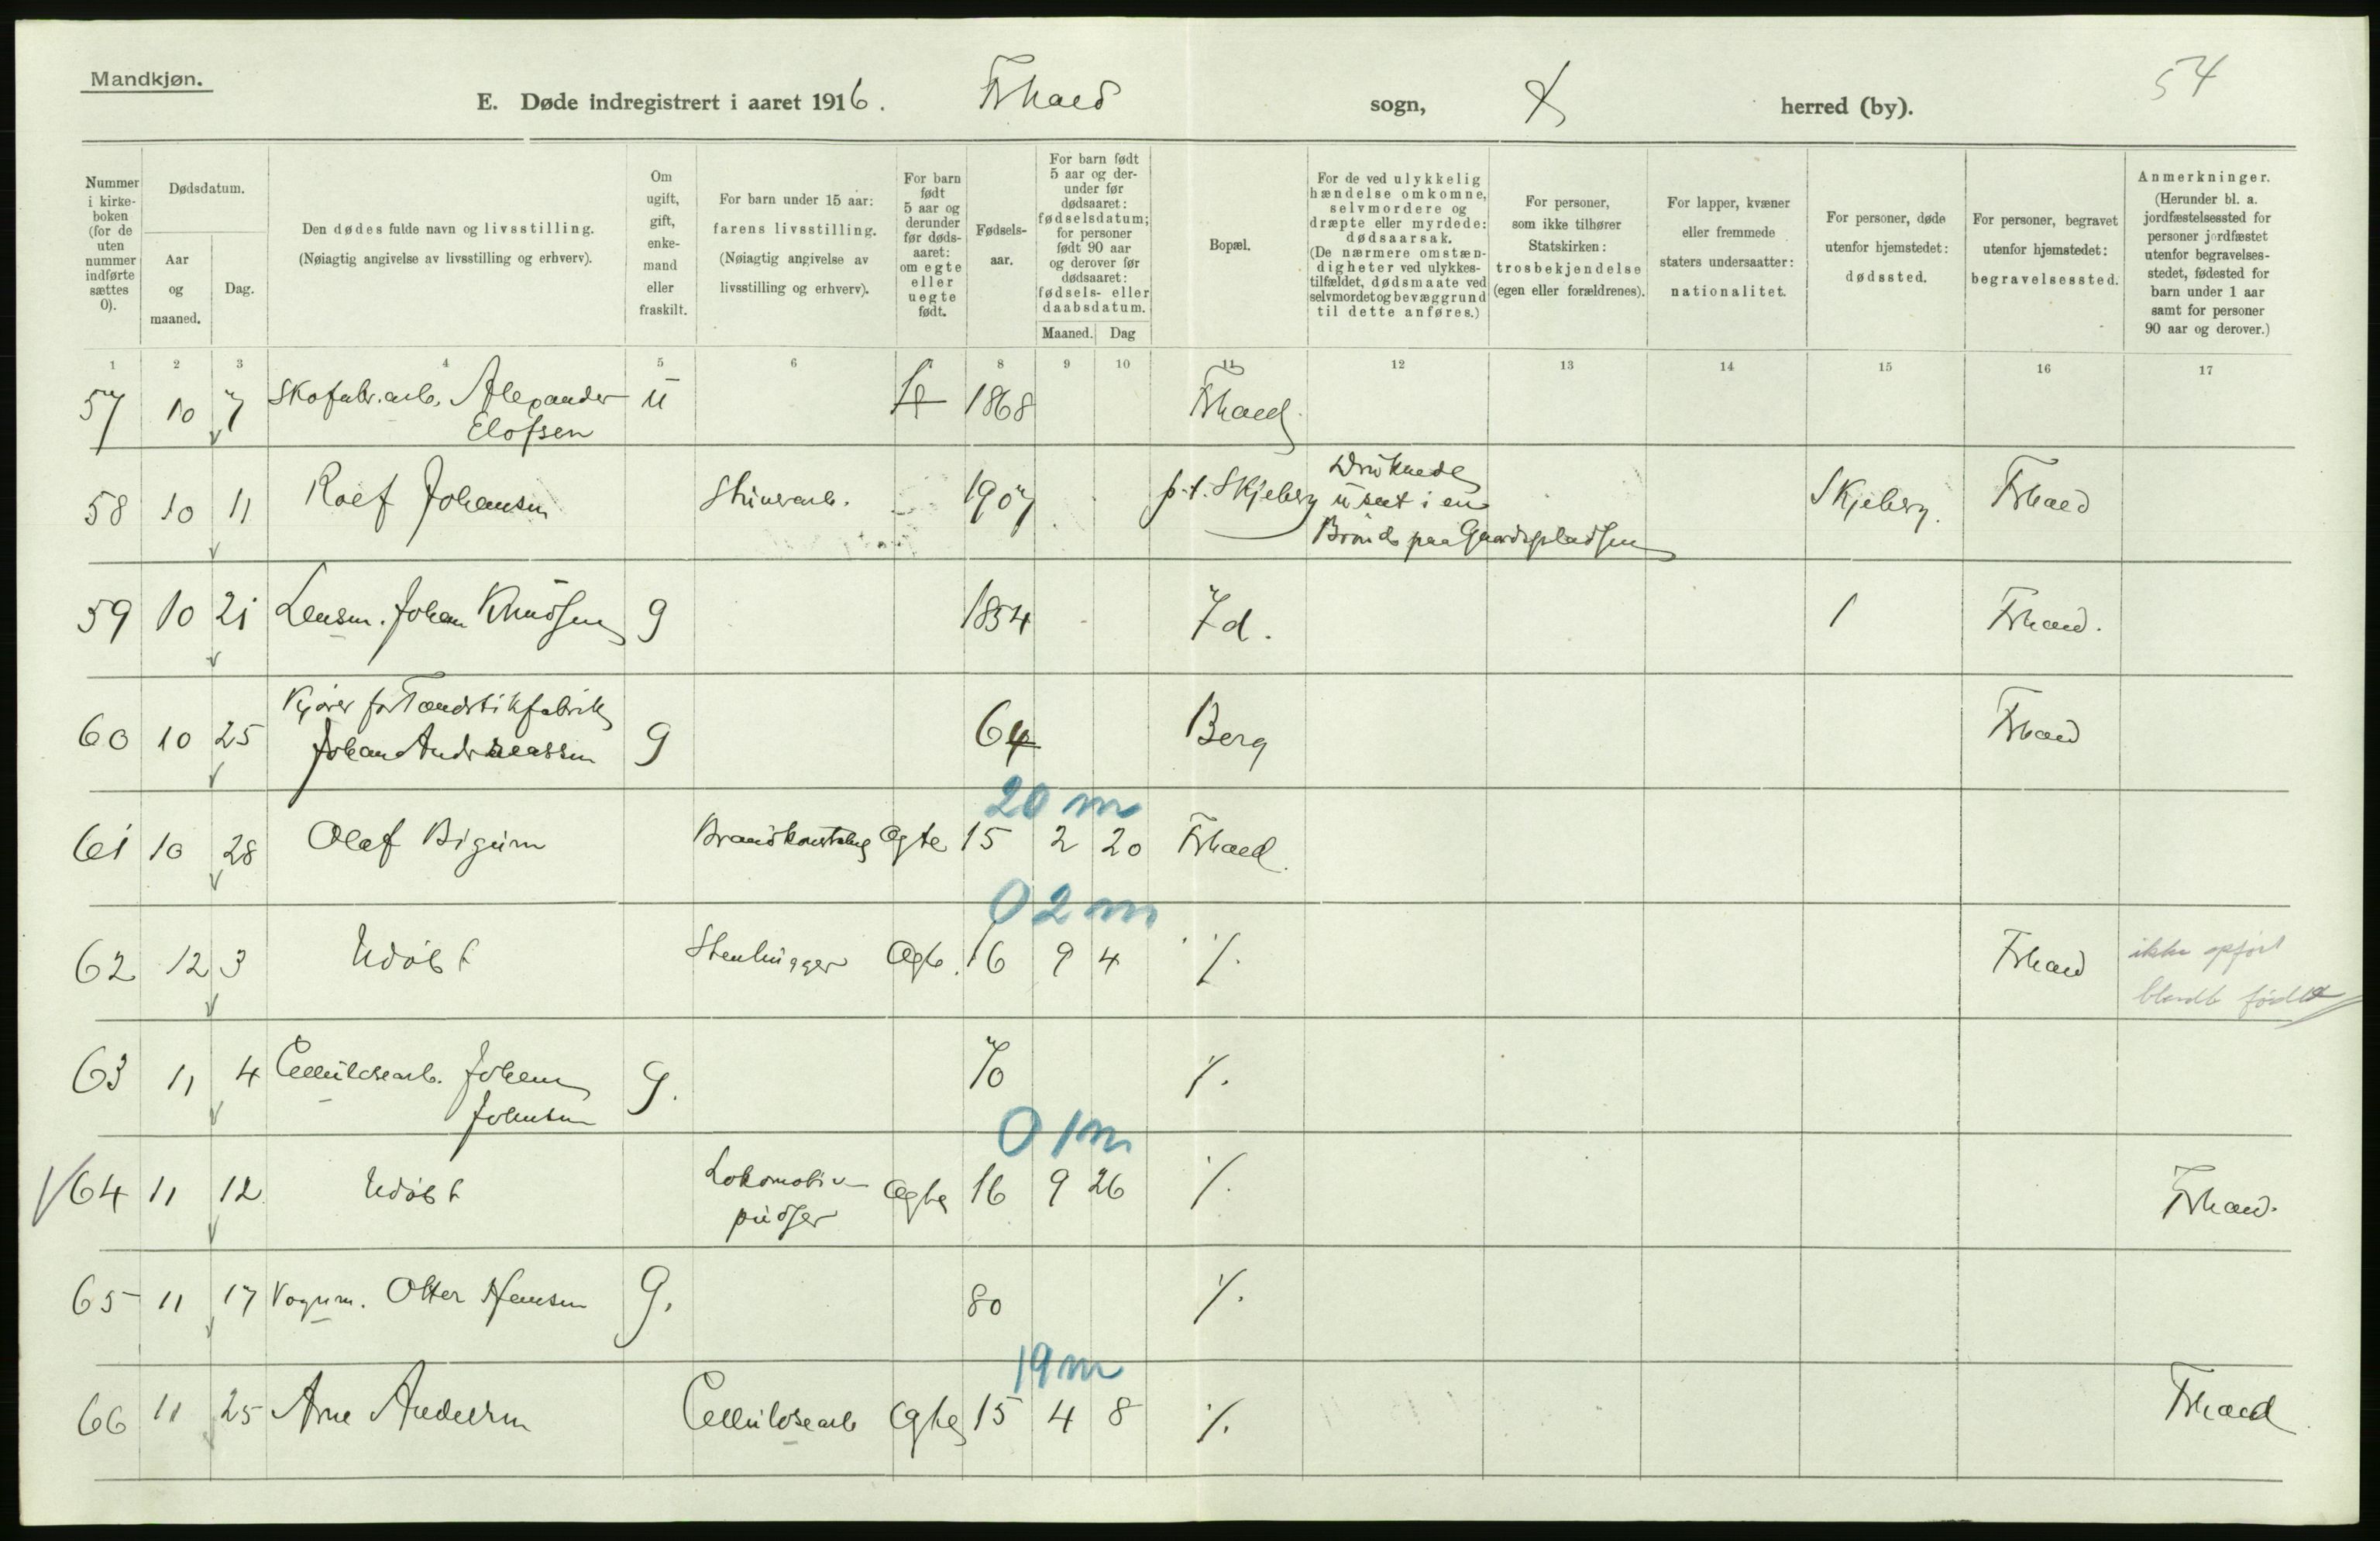 Mandkjøn.
E. Døde indregistrert i aaret 1916. Frhald sogn, herred (by). 54
Nummer i kirkeboken (for de uten nummer indførte sættes 0).
Dødsdatum.
Aar og maaned.
Dag.
Den dødes fulde navn og livsstilling.
(Nøiagtig angivelse av livsstilling og erhverv).
Om ugift, gift, enkemand eller fraskilt.
For barn under 15 aar: farens livsstilling.
(Nøiagtig angivelse av livsstilling og erhverv).
For barn født 5 aar og derunder før dødsaaret: om egte eller uegte født.
Fødselsaar.
For barn født 5 aar og derunder før dødsaaret: fødselsdatum; for personer født 90 aar og derover før dødsaaret: fødsels- eller daabsdatum.
Maaned. Dag
Bopæl.
For de ved ulykkelig hændelse omkomne, selvmordere og dræpte eller myrdede: dødsaarsak.
(De nærmere omstændigheter ved ulykkestilfældet, dødsmaate ved selvmordet og bevæggrund til dette anføres.)
For personer, som ikke tilhører Statskirken: trosbekjendelse (egen eller forældrenes).
For lapper, kvæner eller fremmede staters undersaatter: nationalitet.
For personer, døde utenfor hjemstedet: dødssted.
For personer, begravet utenfor hjemstedet: begravelsessted.
Anmerkninger.
(Herunder bl. a. jordfæstelsessted for personer jordfæstet utenfor begravelsesstedet, fødested for barn under 1 aar samt for personer 90 aar og derover.)
1 2 3 4 5 6 8 9 10 11 12 13 14 15 16 17
57 10 7 Skofabr.arb. Alexander u 1868 Frhald
Elofsen
58 10 11 Rolf Johansen Stenarb. 1907 p.t. Skjeberg Druknede Skjeberg. Frhald
u seet i en
Brønd paa Gaardspladsen
59 10 21 Lensm. Johan Knudsen g 1854 Id. / Frhald.
60 10 25 Kjører for Tændstikfabrik g 64 Berg Frhald
Johan Andreassen
20 m
61 10 28 Olaf Bigum Brandkonstabel Ægte 15 2 20 Frhald.
0 2 m
62 12 3 Udøbt Stenhugger Ægte 16 9 4 ⁒ Frhald ikke opført
blandt fødte
63 11 4 Cellulosearb. Johan g. 70 ⁒
Johansen
0 1 m
64 11 12 Udøbt Lokomotiv- Ægte 16 9 26 ⁒ Frhald.
pudser
65 11 17 Vognm. Otter Hansen G. 80 ⁒
19 m
66 11 25 Arne Andersen Cellulosearb Ægte 15 4 8 ⁒ Frhald